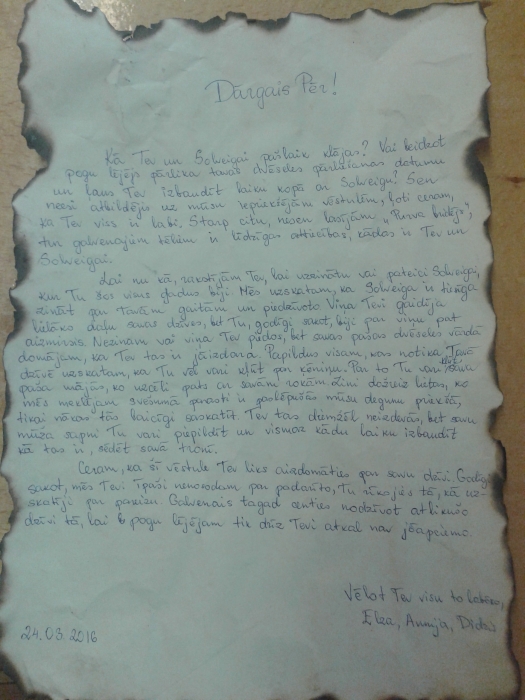 Dārgais Pēr!
Kā Tev un Solweigai pašlaik klājas? Vai beidzot
pogu lējējs pārlika tavas dvēseles pārliešanas datumu
un ļaus Tev izbaudīt laiku kopā ar Solweigu? Sen
neesi atbildējis uz mūsu iepriekšējām vēstulēm, ļoti ceram,
ka Tev viss ir labi. Starp citu, nesen lasījām „Purva bridējs",
tur galvenajiem tēliem ir līdzīgas attiecības, kādas ir Tev un
Solweigai.
Lai nu kā, rakstījām Tev, lai uzzinātu vai pateici Solweigai,
kur Tu šos visus gadus biji. Mēs uzskatam, ka Solweiga ir tiesīga
zināt par Tavām gaitām un piedzīvoto. Viņa Tevi gaidīja
lielāko daļu savas dzīves, bet Tu, godīgi sakot, biji par viņu pat
aizmirsis. Nezinam vai viņa Tev piedos, bet savas pašas dvēseles vārdā
domājam, ka Tev tas ir jāizdara. Papildus visam, kas notika Tavā
dzīvē uzskatam, ka Tu vēl vari kļūt par ķēniņu. Par to Tu vari savā
paša mājās, ko uzcēli pats ar savām rokām. Zini dažreiz lietas, ko
mēs meklējam svešumā parasti ir paslēpušās mūsu degunu priekšā,
tikai nākas tās laicīgi saskatīt. Tev tas diemžēl neizdevās, bet savu
mūža sapni Tu vari piepildīt un vismaz kādu laiku izbaudīt
kā tas ir, sēdēt savā tronī.
Ceram, ka šī vēstule Tev liks aizdomāties par savu dzīvi. Godīgi
sakot, mēs Tevi īpaši nenosodam par padarīto, Tu rīkojies tā, kā uz-
skatīji par pareizu. Galvenais tagad centies nodzīvot atlikušo
dzīvi tā, lai pogu lējējam tik drīz Tevi atkal nav jāapciemo.
Vēlot Tev visu to labāko,
Elza, Annija, Didzis
24.03.2016